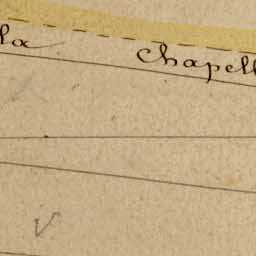 la Chapell